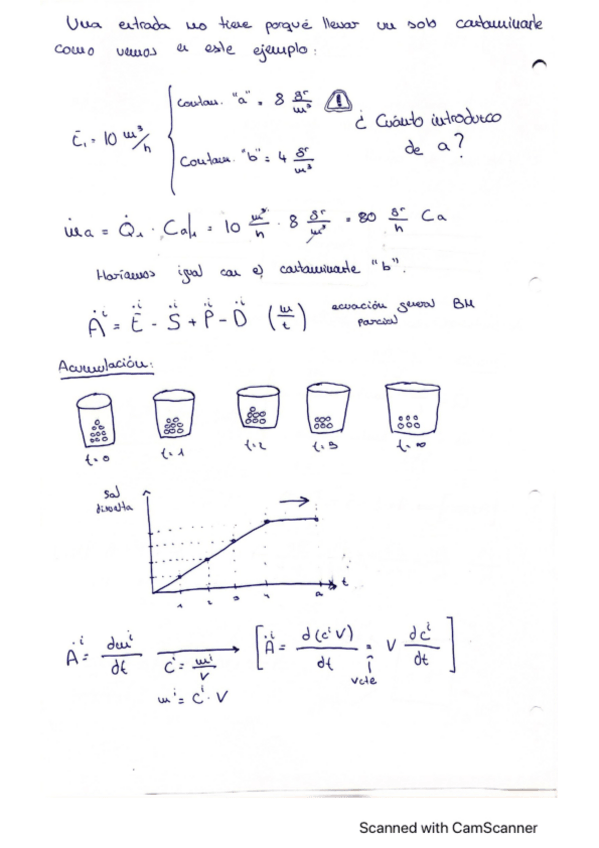 Una entrada no tiene porqué llevar un solo contaminante
como vemos en este ejemplo:
Ė₁ = 10 m³/h
Contam. "a" = 8 gr/m³
Contam. "b" = 4 gr/m³
¿Cuánto introduzco
de a?
ṁa = Q̇₁ · Ca|₁ = 10 m³/h · 8 gr/m³ = 80 gr/h Ca
Haríamos igual con el contaminante "b".
Ȧⁱ = Ėⁱ - Ṡⁱ + Ṗⁱ - Ḋⁱ (m/t) ecuación general BM
parcial
Acumulación:
t=0 t=1 t=2 t=3 t=∞
Sal
disuelta
t
1 2 3 4 ∞
Ȧⁱ = dmⁱ/dt → [Ȧⁱ = d(cⁱV)/dt = V dcⁱ/dt]
cⁱ = mⁱ/V
mⁱ = cⁱ · V
V cte
Scanned with CamScanner